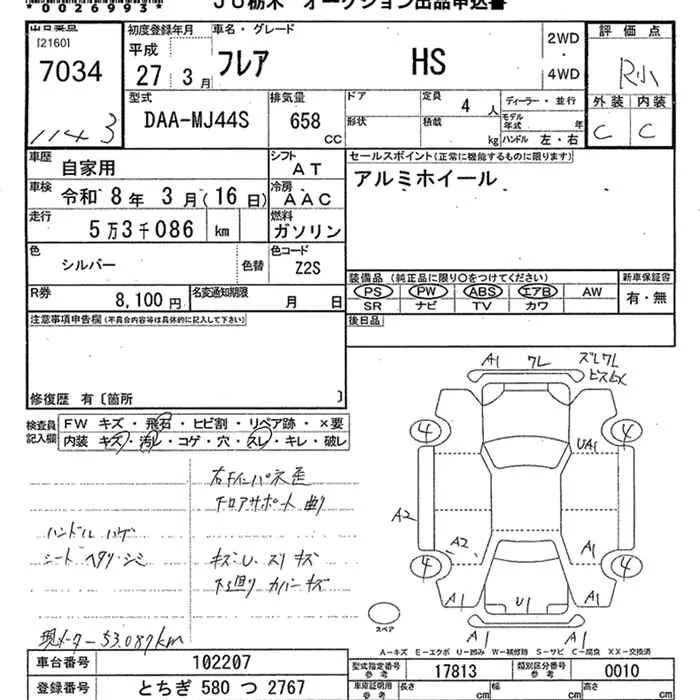 *0026993*
JU栃木 オークション出品申込書
[2160]
7034
1143
初度登録年月
平成
27 3月
車名・グレード
フレア HS
2WD
・
4WD
評価点
R小
外装 内装
C C
型式
DAA-MJ44S
排気量
658
CC
ドア
形状
定員
4人
積載
kg
ディーラー・並行
モデル年式 年
ハンドル 左・右
車歴
自家用
シフト
AT
セールスポイント(正常に機能するものに限ります)
アルミホイール
車検
令和 8年 3月(16日)
冷房
AAC
走行
5万3千086 km
燃料
ガソリン
色
シルバー
色替
色コード
Z2S
R券
8,100円
名変通知期限
月 日
装備品(純正品に限り○をつけてください)
PS PW ABS エアB AW
SR ナビ TV カワ
新車保証書
有・無
注意事項申告欄(不具合内容等は具体的に記入して下さい)
後日品
修復歴 有〔箇所 〕
検査員記入欄
FW キズ・飛石・ヒビ割・リペア跡・×要
内装 キズ・汚レ・コゲ・穴・スレ・キレ・破レ
右下インパネ歪
フロアサポート曲り
ハンドル ハゲ
シート ヘタリ・シミ
キズ・U・スリキズ
下廻り カバーキズ
現メーター 53.087km
A1 ワレ ズレワレ
ビス止メ
4 4
UA1
A2
A2 A1
4 4
A1 U1 A1
A1 A1
スペア
A－キズ E－エクボ U－凹み W－補修跡 S－サビ C－腐食 XX－交換済
車台番号
102207
登録番号
とちぎ 580 つ 2767
型式指定番号
参考
17813
類別区分番号
参考
0010
車庫証明用
参考
長さ cm
幅 cm
高さ cm